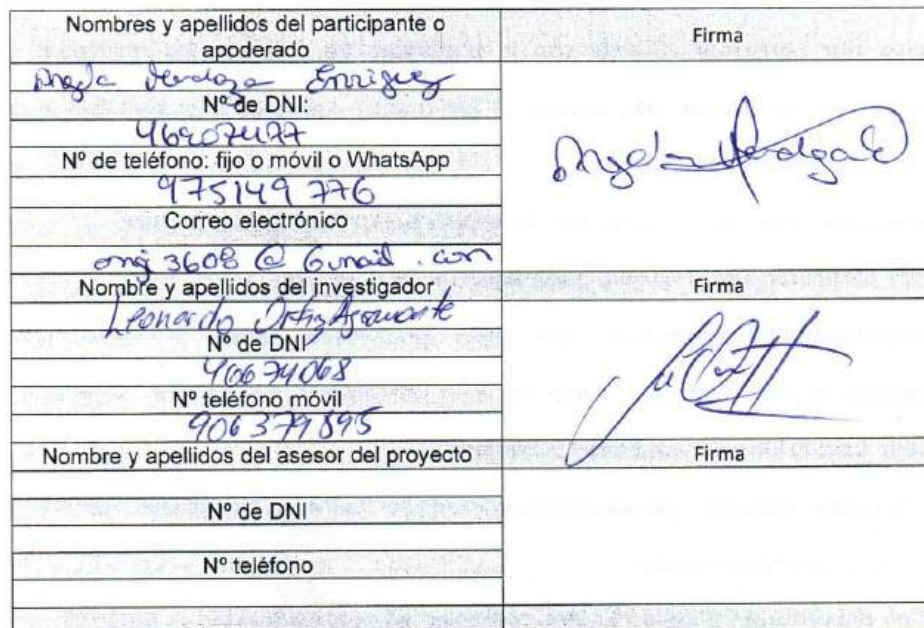 Nombres y apellidos del participante o
apoderado
Firma
Angela Mendoza Enriquez
Nº de DNI:
Nº de teléfono: fijo o móvil o WhatsApp
975149 776
Correo electrónico
3608 @ Gmail . com
Nombre y apellidos del investigador
Firma
Leonardo Ortiz Agramonte
Nº de DNI
40674068
Nº teléfono móvil
906379895
Nombre y apellidos del asesor del proyecto
Firma
Nº de DNI
Nº teléfono